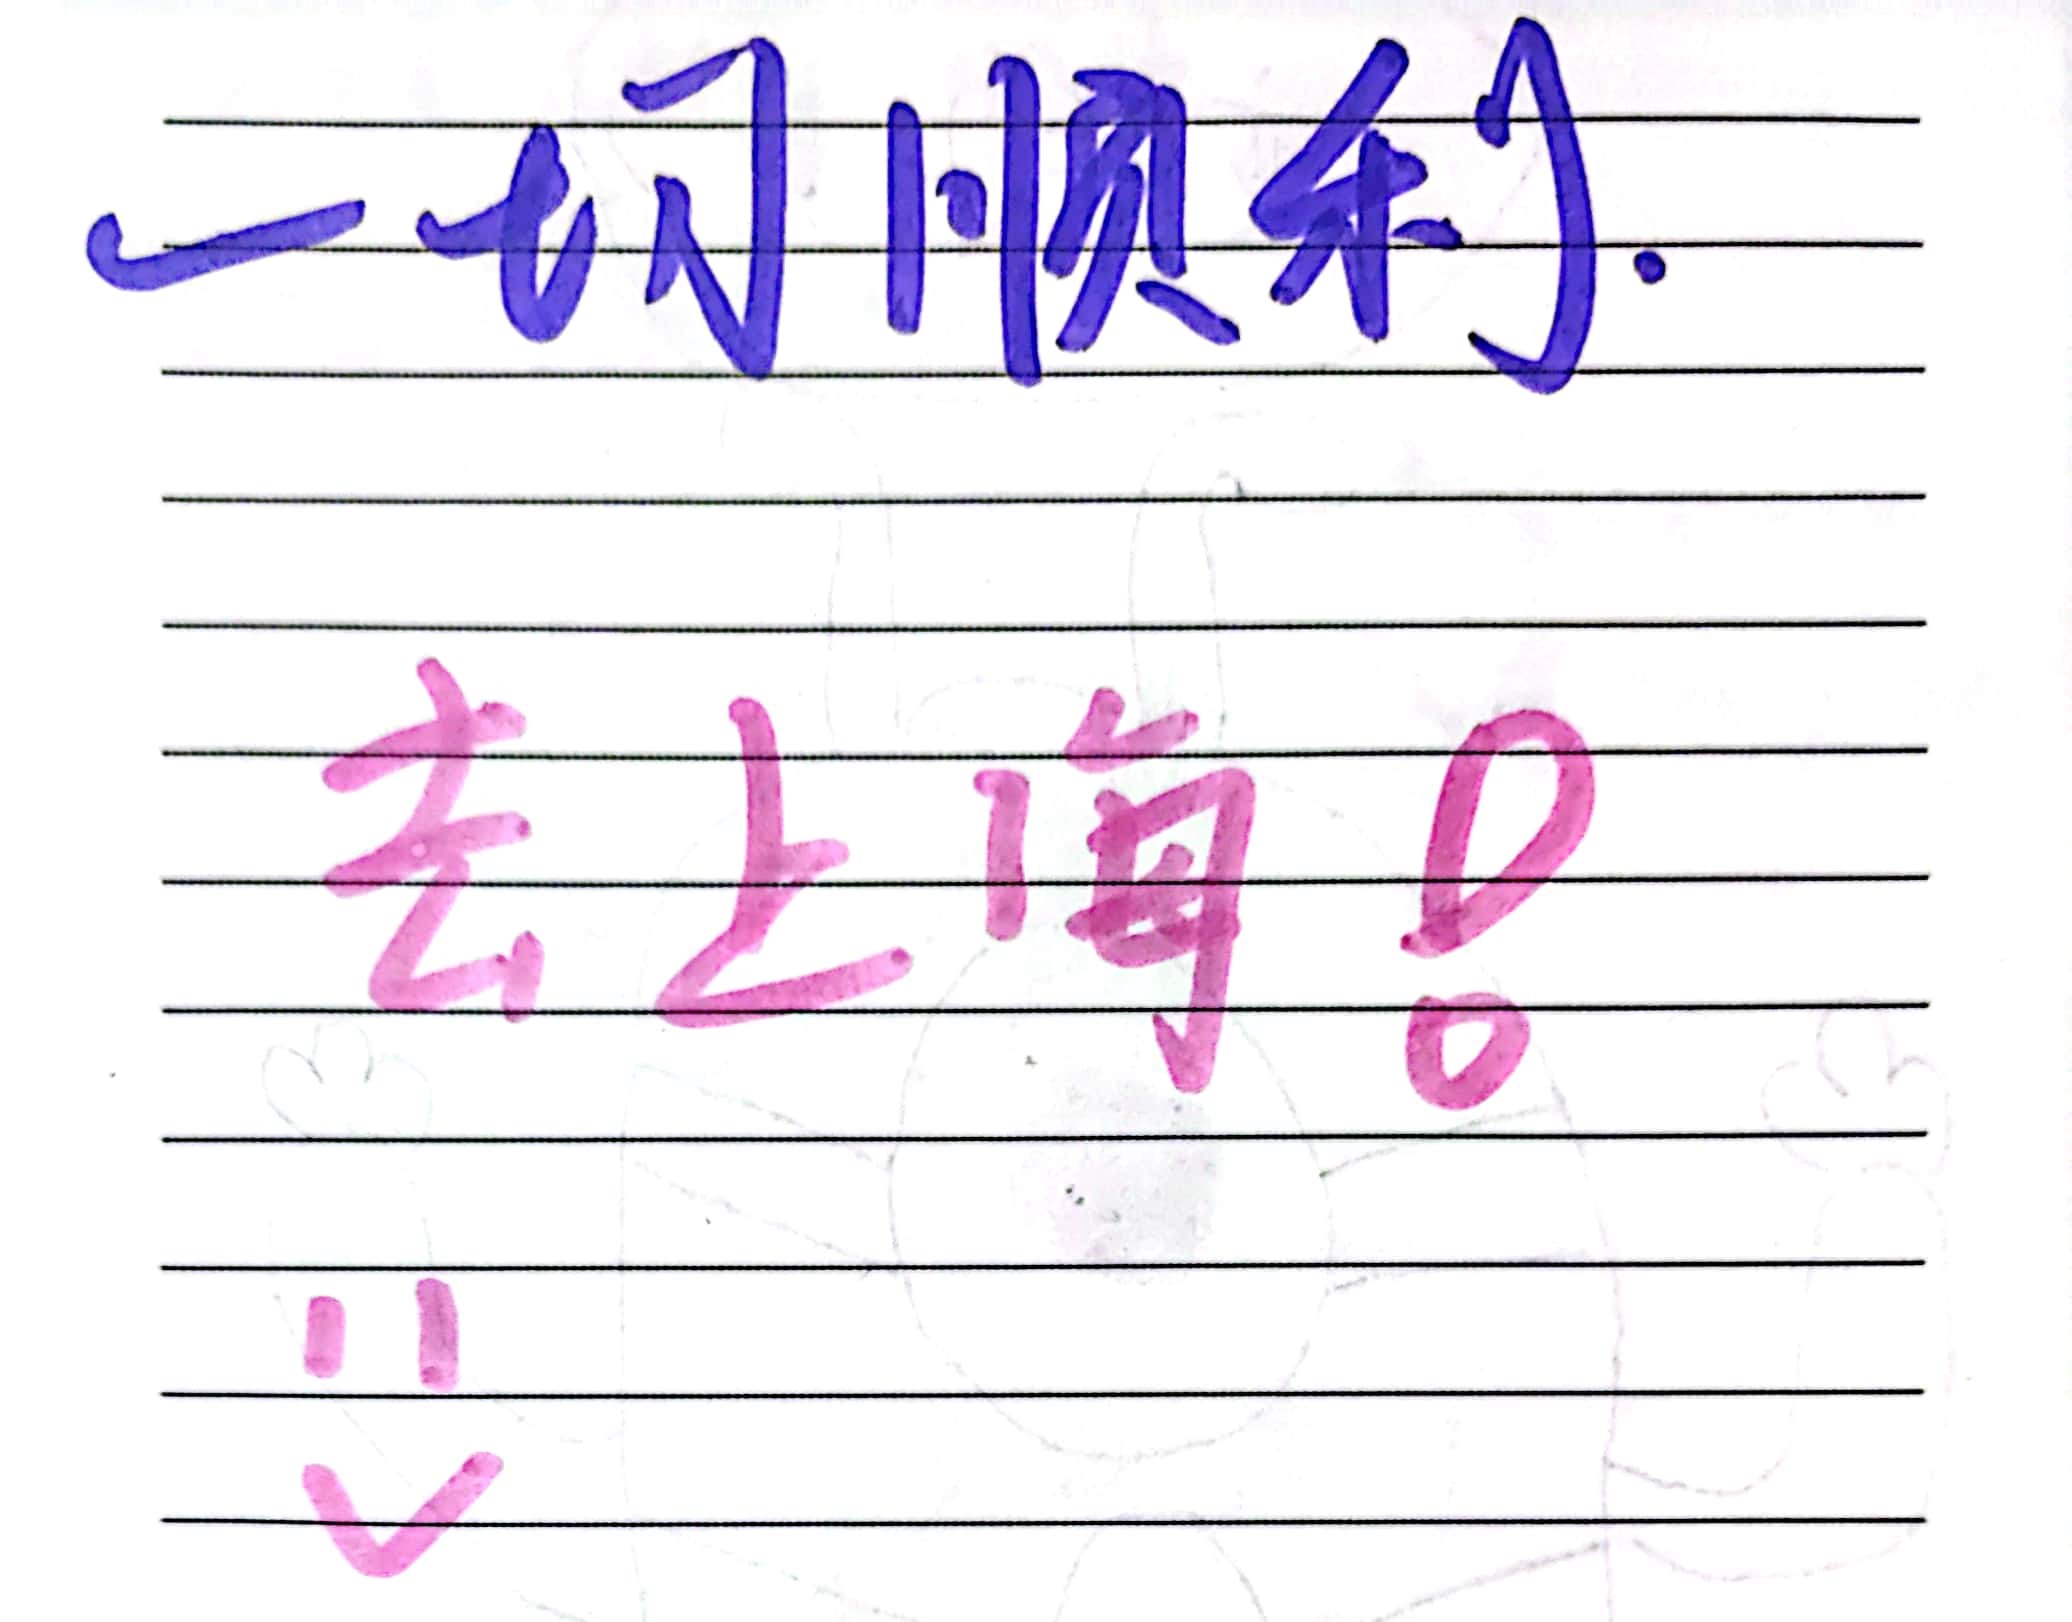 一切顺利.
去上海!